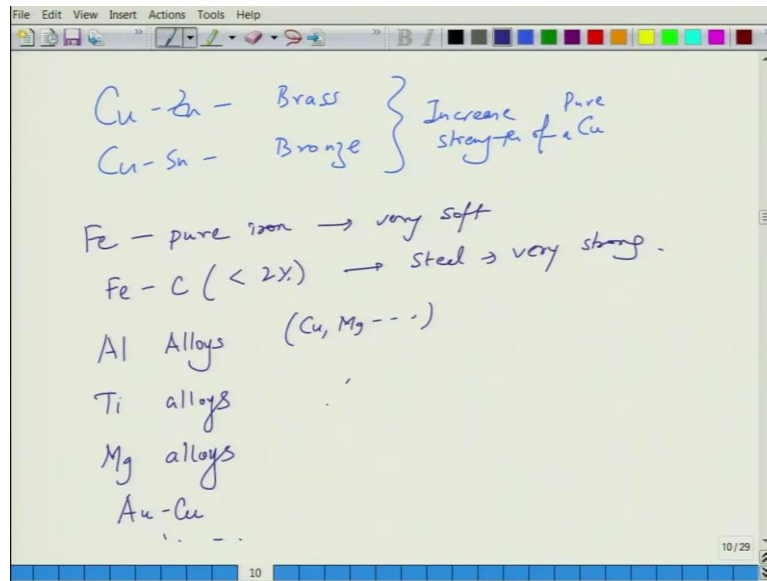 File Edit View Insert Actions Tools Help
B I
Cu - Zn - Brass } Increase Pure
Cu - Sn - Bronze } strength of a Cu
Fe - pure iron → very soft
Fe - C ( < 2%) → Steel → very strong.
Al Alloys (Cu, Mg - - - )
Ti alloys
Mg alloys
Au - Cu
10/29
10